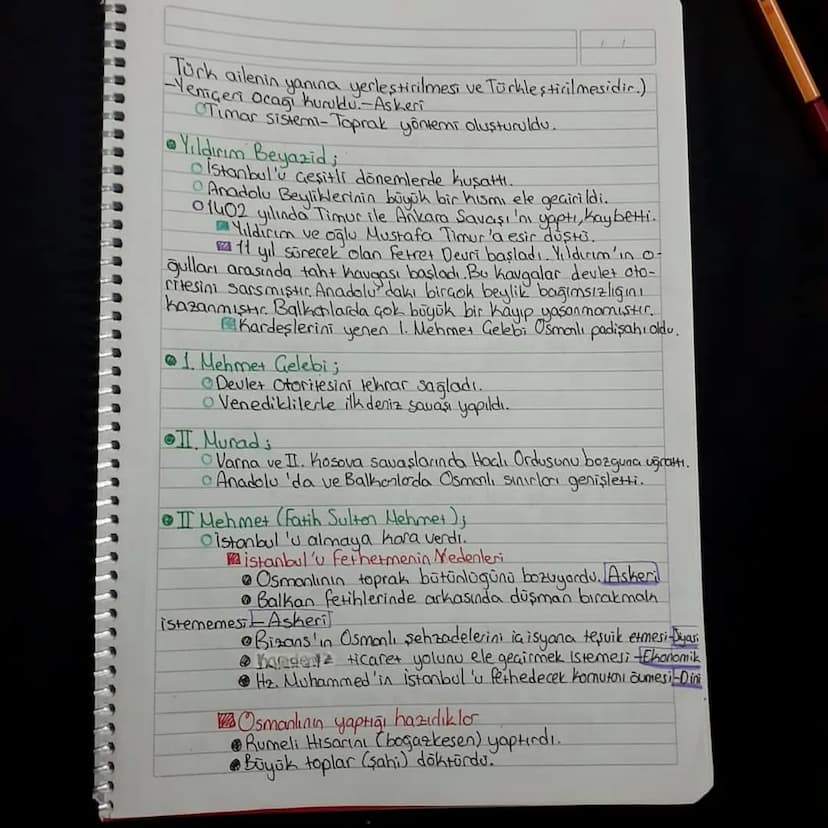 Türk ailenin yanına yerleştirilmesi ve Türkleştirilmesidir.)
-Yeniçeri Ocağı kuruldu.-Askeri
Tımar sistemi-Toprak yöntemi oluşturuldu.
Yıldırım Beyazid;
İstanbul'u çeşitli dönemlerde kuşattı.
Anadolu Beyliklerinin büyük bir kısmı ele geçirildi.
1402 yılında Timur ile Ankara Savaşı'nı yaptı, kaybetti.
Yıldırım ve oğlu Mustafa Timur'a esir düştü.
11 yıl sürecek olan Fetret Devri başladı. Yıldırım'ın o-
ğulları arasında taht kavgası başladı. Bu kavgalar devlet oto-
ritesini sarsmıştır. Anadolu'daki birçok beylik bağımsızlığını
kazanmıştır. Balkanlarda çok büyük bir kayıp yaşanmamıştır.
Kardeşlerini yenen 1. Mehmet Çelebi Osmanlı padişahı oldu.
1. Mehmet Çelebi;
Devlet otoritesini tekrar sağladı.
Venediklilerle ilk deniz savaşı yapıldı.
II. Murad;
Varna ve II. Kosova savaşlarında Haçlı Ordusunu bozguna uğrattı.
Anadolu'da ve Balkanlarda Osmanlı sınırları genişletti.
II Mehmet (Fatih Sultan Mehmet);
İstanbul'u almaya kara verdi.
İstanbul'u Fethetmenin Nedenleri
Osmanlının toprak bütünlüğünü bozuyordu. Askeri
Balkan fetihlerinde arkasında düşman bırakmak
istememesi-Askeri
Bizans'ın Osmanlı şehzadelerini iç isyana teşvik etmesi-Siyasi
Karadeniz ticaret yolunu ele geçirmek istemesi-Ekonomik
Hz. Muhammed'in İstanbul'u fethedecek komutanı övmesi-Dini
Osmanlının yaptığı hazıdıklar
Rumeli Hisarını (boğazkesen) yaptırdı.
Büyük toplar (şahi) döktürdü.